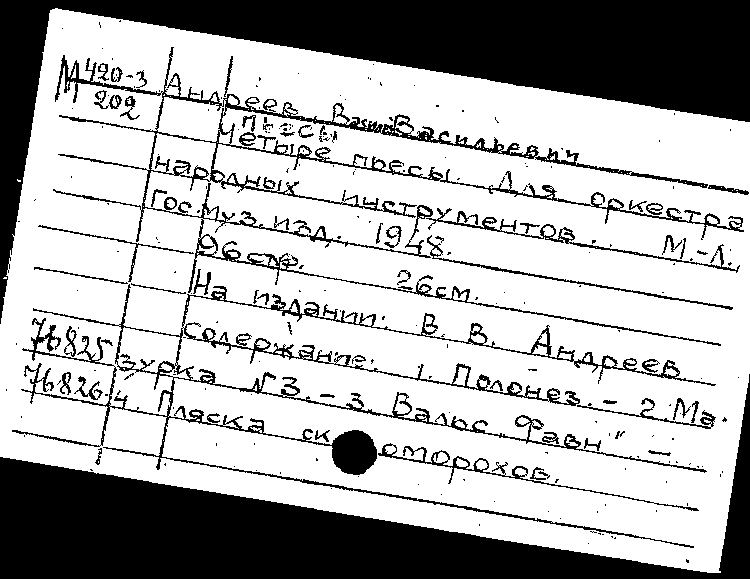 М 420-3
202
Андреев, Василий Васильевич
Пьесы
Четыре пьесы. Для оркестра
народных инструментов. М.-Л.,
Гос.муз.изд., 1948.
96стр. 26см.
На издании: В. В. Андреев
Содержание: 1. Полонез. - 2 Ма-
76825 зурка №3. - 3. Вальс „Фавн" -
76826 4. Пляска скоморохов.